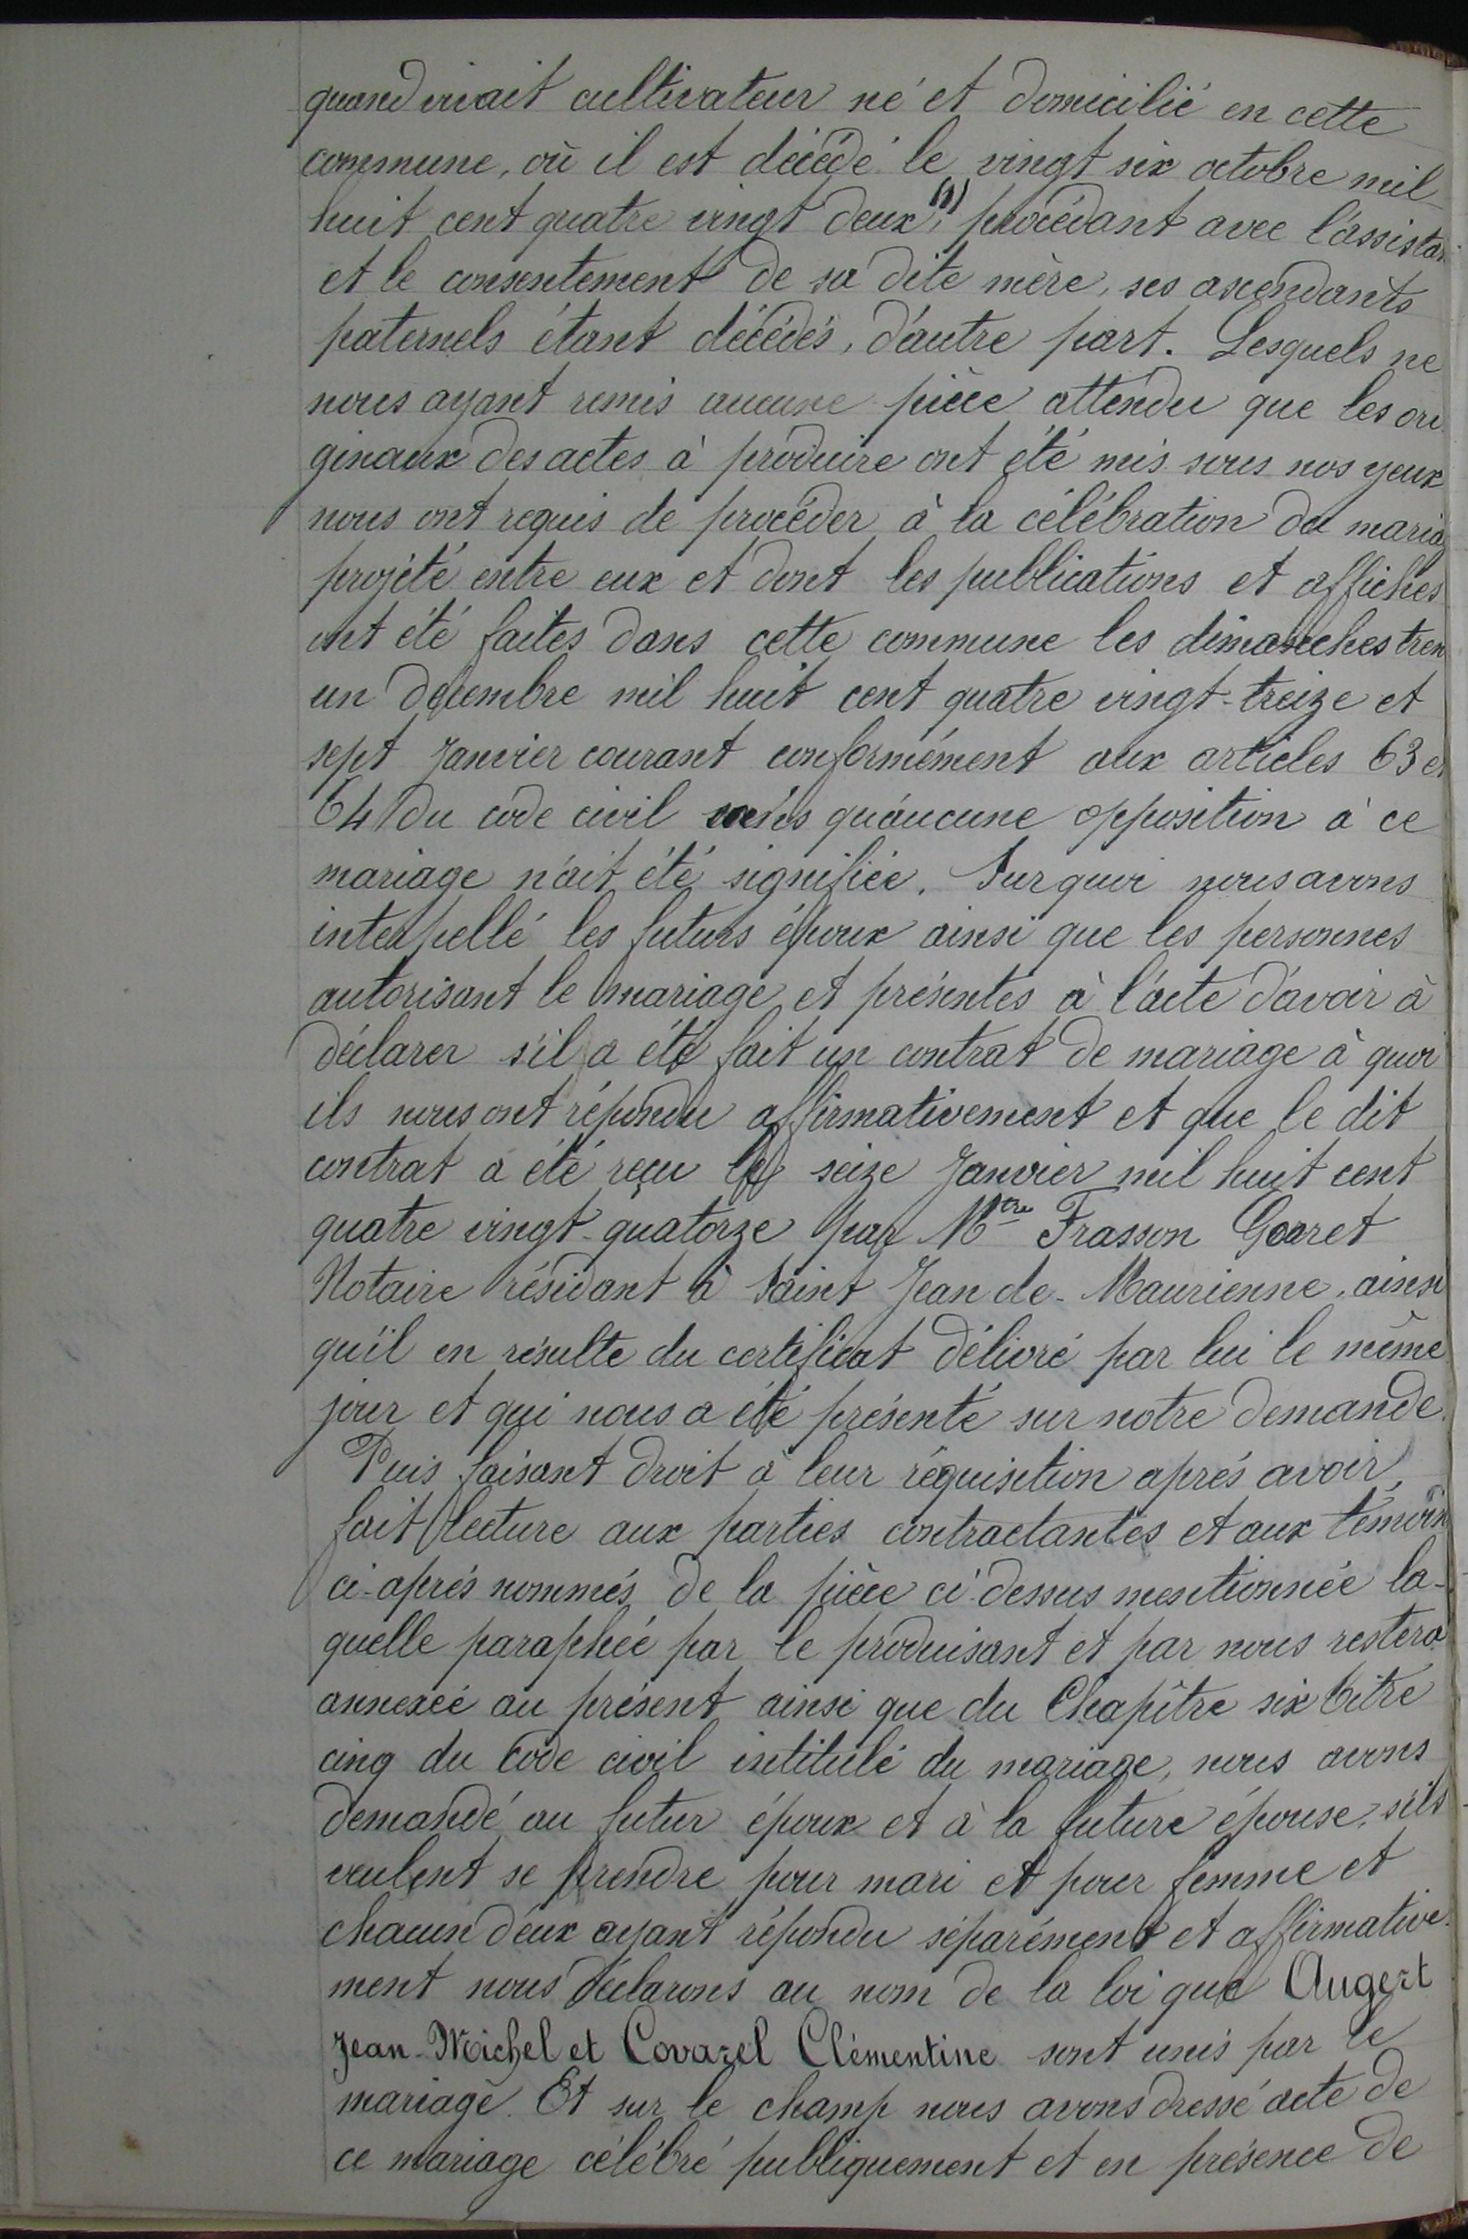 quand vivait cultivateur né et domicilié en cette
commune, où il est décédé le vingt six octobre mil
huit cent quatre vingt deux, (1) procédant avec l'assistan
et le consentement de sa dite mère, ses ascendants
paternels étant décédés, d'autre part. Lesquels ne
nous ayant remis aucune pièce attendu que les ori
ginaux des actes à produire ont été mis sous nos yeux
nous ont requis de procéder à la célébration du maria
projeté entre eux et dont les publications et affiches
ont été faites dans cette commune les dimanches tren
un décembre mil huit cent quatre vingt-treize et
sept Janvier courant conformément aux articles 63 et
64 du code civil sans qu'aucune opposition à ce
mariage n'ait été signifiée. Sur quoi nous avons
interpellé les futurs époux ainsi que les personnes
autorisant le mariage et présentes à l'acte d'avoir à
déclarer s'il a été fait un contrat de mariage à quoi
ils nous ont répondu affirmativement et que le dit
contrat a été reçu le seize Janvier mil huit cent
quatre vingt-quatorze par Mtre Frasson Gorret
Notaire résidant à Saint Jean de-Maurienne, ainsi
qu'il en résulte du certificat délivré par lui le même
jour et qui nous a été présenté sur notre demande.
Puis faisant droit à leur réquisition après avoir
fait lecture aux parties contractantes et aux témoin
ci-après nommés de la pièce ci-dessus mentionnée la-
quelle paraphée par le produisant et par nous restera
annexée au présent ainsi que du Chapître six titre
cinq du Code civil intitulé du mariage, nous avons
demandé au futur époux et à la future épouse, s'ils
veulent se prendre pour mari et pour femme et
chacun d'eux ayant répondu séparément et affirmative-
ment nous déclarons au nom de la loi que Augert
Jean-Michel et Covarel Clémentine sont unis par le
mariage. Et sur le champ nous avons dressé acte de
ce mariage célébré publiquement et en présence de